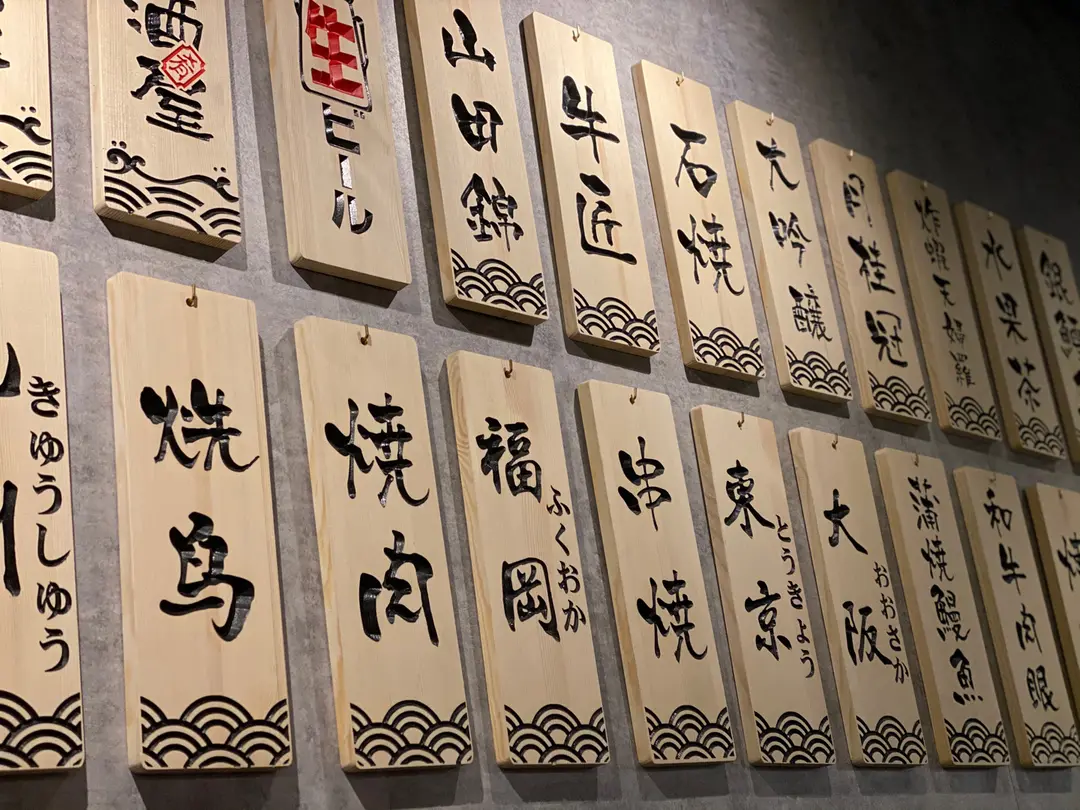 生ビール
山田錦
牛匠
石燒
大吟釀
月桂冠
炸蝦天婦羅
水果茶
銀鱈
きゅうしゅう
焼鳥
燒肉
福岡
ふくおか
串燒
東京
とうきょう
大阪
おおさか
蒲燒鰻魚
和牛肉眼
燒